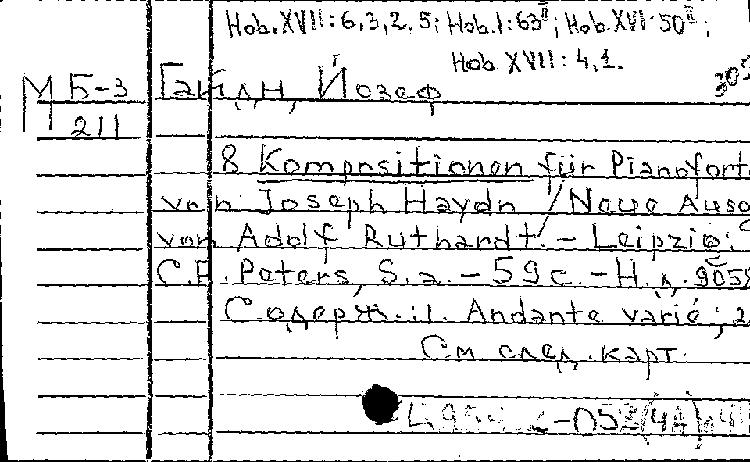 Hob. XVII: 6, 3, 2, 5; Hob. I: 63 II; Hob. XVI: 50 II;
Hob XVII: 4, 1.
М Б-3
211
Гайдн, Йозеф
8 Kompositionen für Pianofort
von Joseph Haydn / Neue Ausg
von Adolf Ruthardt. - Leipzig:
C.F. Peters, S.a. - 59 с. - Н.д. 9059
Содерж.: 1. Andante varié; 2
См след. карт.